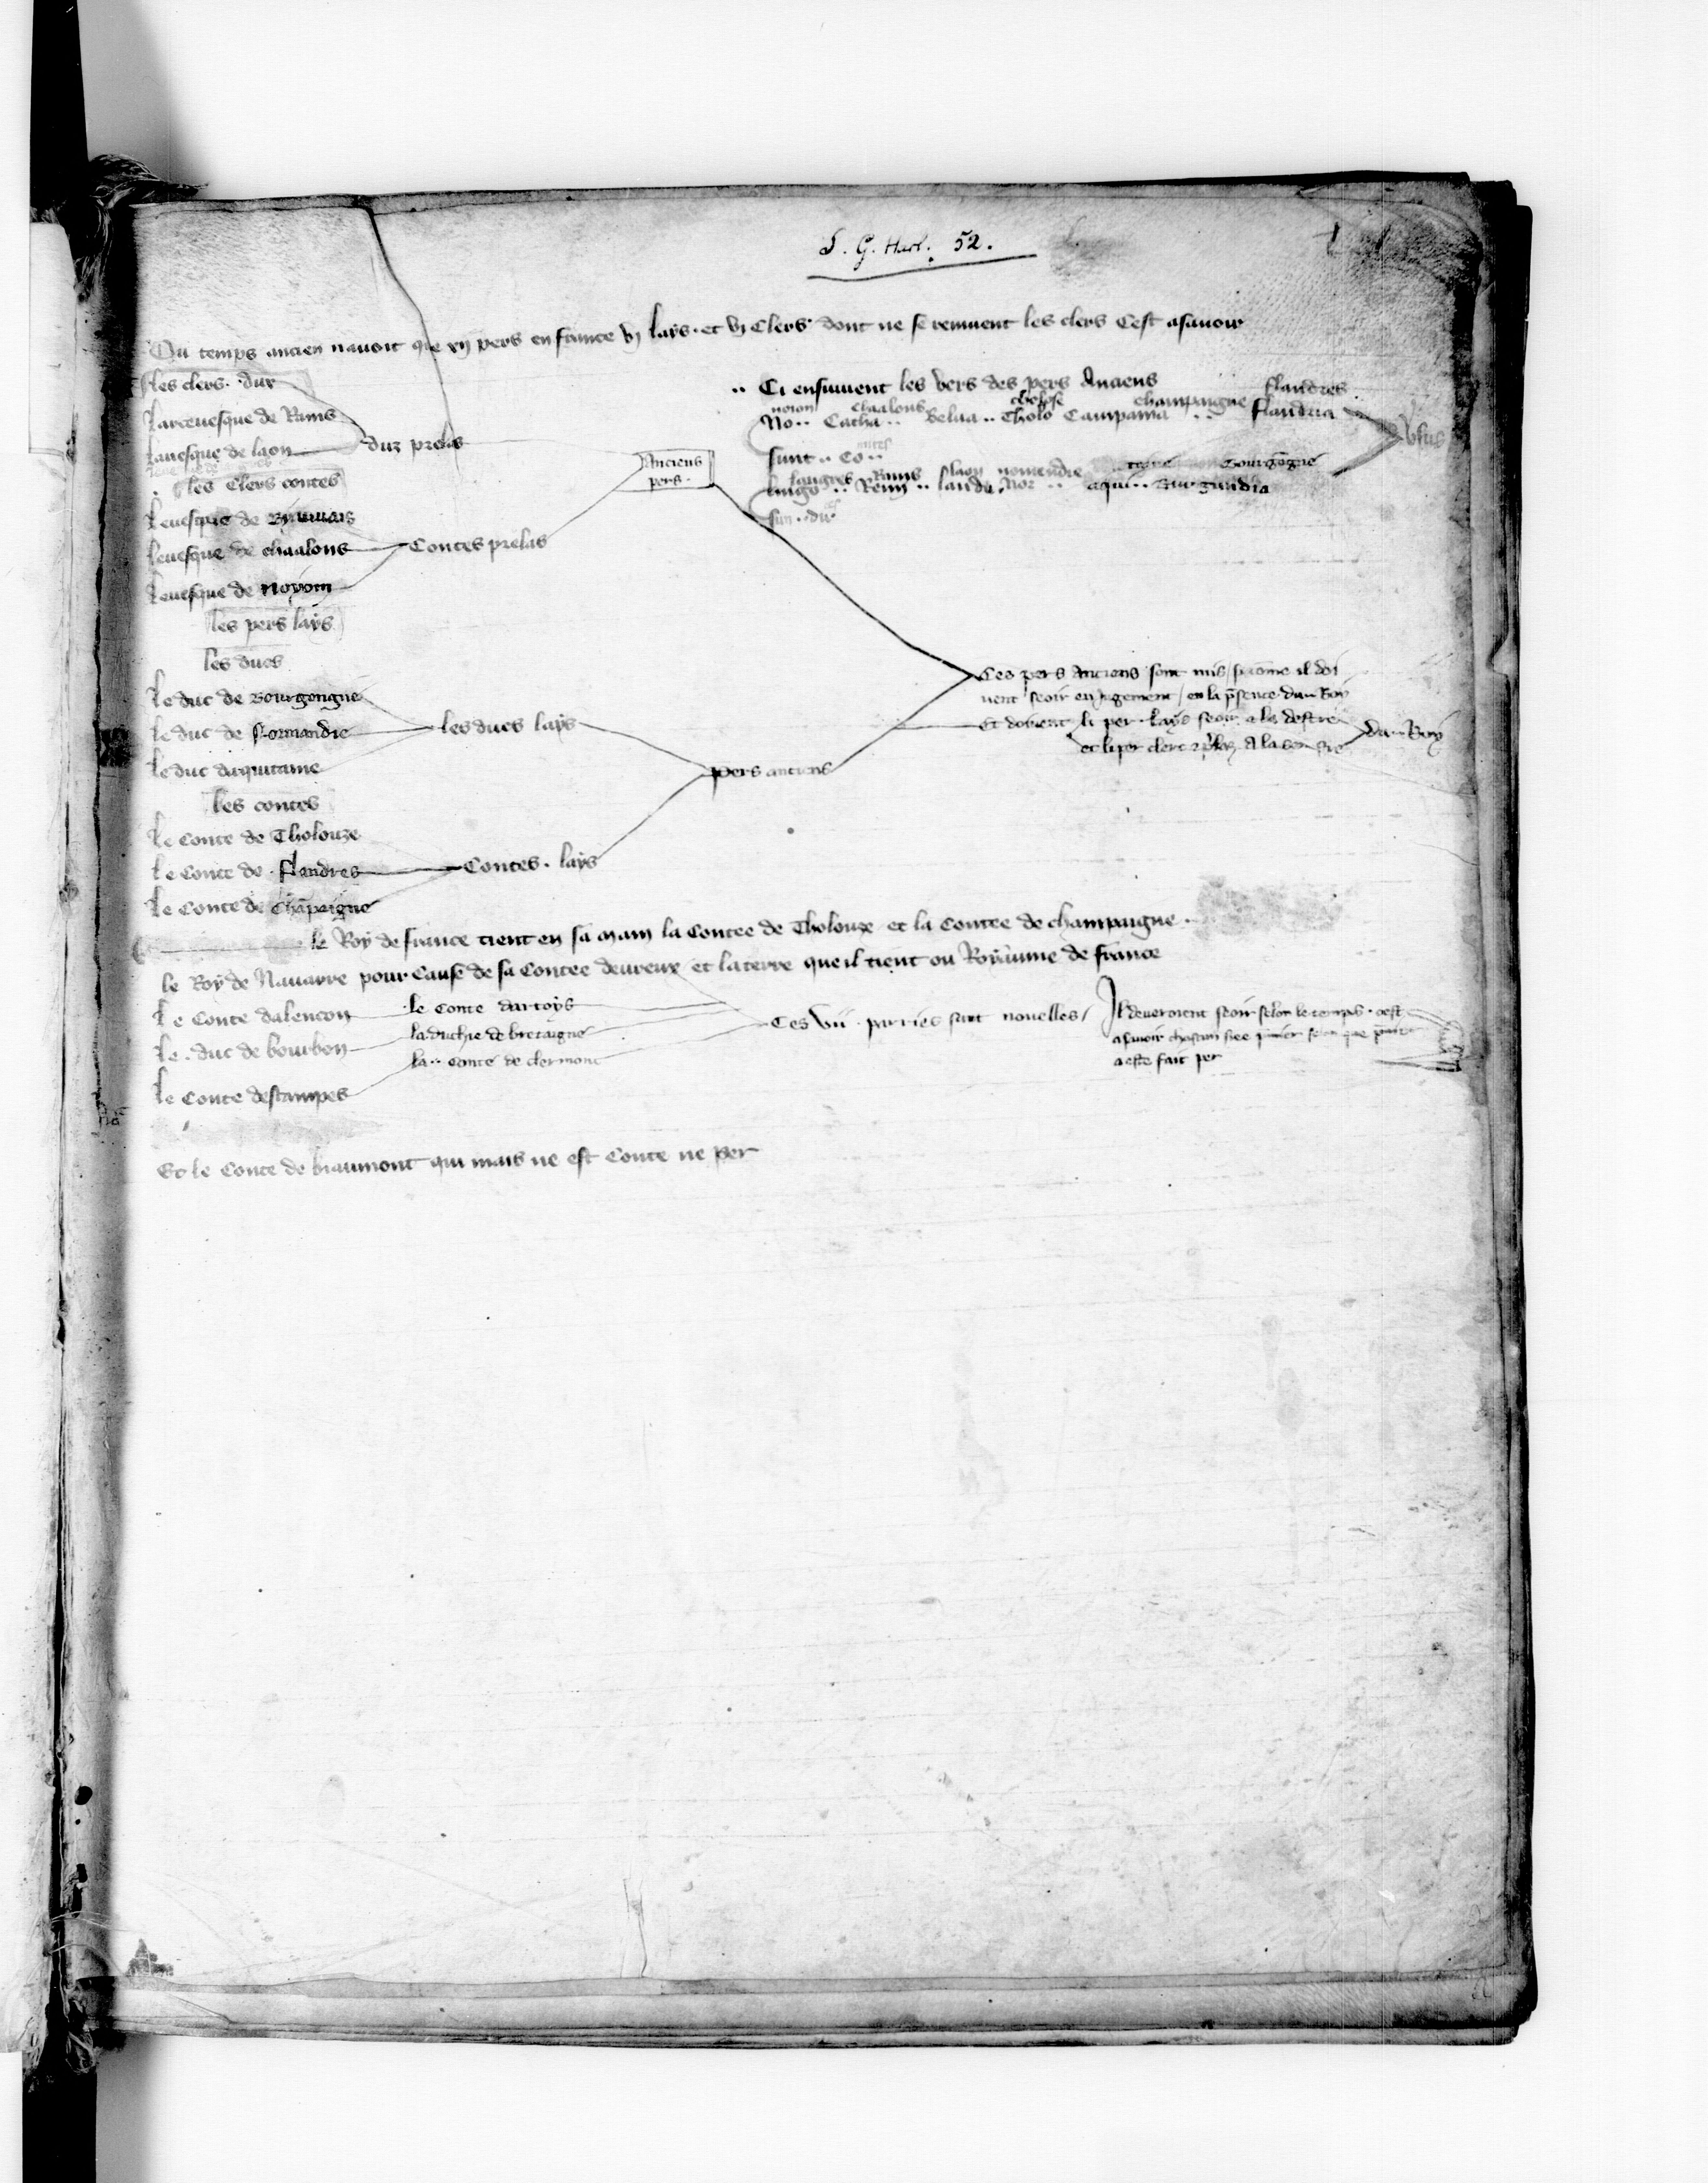 S. G. Harl. 52.
Ou temps ancien nauoit que xij pers en france vj lays et vj Clers dont ne se remuent les clers Cest asauoir
les clers dux
Larceuesque de Rains
Leuesque de laon
duz prelas
les Clers contes
Leuesque de Biauuais
Leuesque de chaalons
Leuesque de Noyom
Contes prelas
Anciens
pers
.. Ci ensuiuent les vers des pers Anciens
noion chaalons tholose champaigne flandres
No.. Catha.. Belua.. Tholo Campania .. flandria
sunt .. Co..
langres Rains laon normendie Bourgogne
lingo.. Remis.. laudu. Nor .. aqui.. Burgundia
sun.. du
versus
les pers lays
les ducs
Le duc de Bourgongne
Le duc de Normandie
Le duc daquitaine
les ducs lays
les contes
Le Conte de Tholouze
Le Conte de flandres
Le Conte de Chāpaigne
Contes lays
pers anciens
Ces pers Anciens sont mis sicōme il doi
uent seoir en Jugement en la p̄sence du Roy
Et doiuent li per lays seoir a la destre
et li per clerc a la senestre
du Roy
le Roy de france tient en sa main la Contee de Tholouze et la Contee de champaigne
le Roy de Nauarre pour Cause de sa Contee deureux et la terre que il tient ou Royaume de france
Le Conte dalencon
Le duc de bourbon
Le Conte destampes
le Conte dartoys
la duchie de bretaigne
la conte de clermont
Ces vii parries sunt nouelles
Il deueroient seoir selon le temps cest
asauoir chascun selon que
a este fait per
Et le Conte de biaumont qui mais ne est Conte ne per